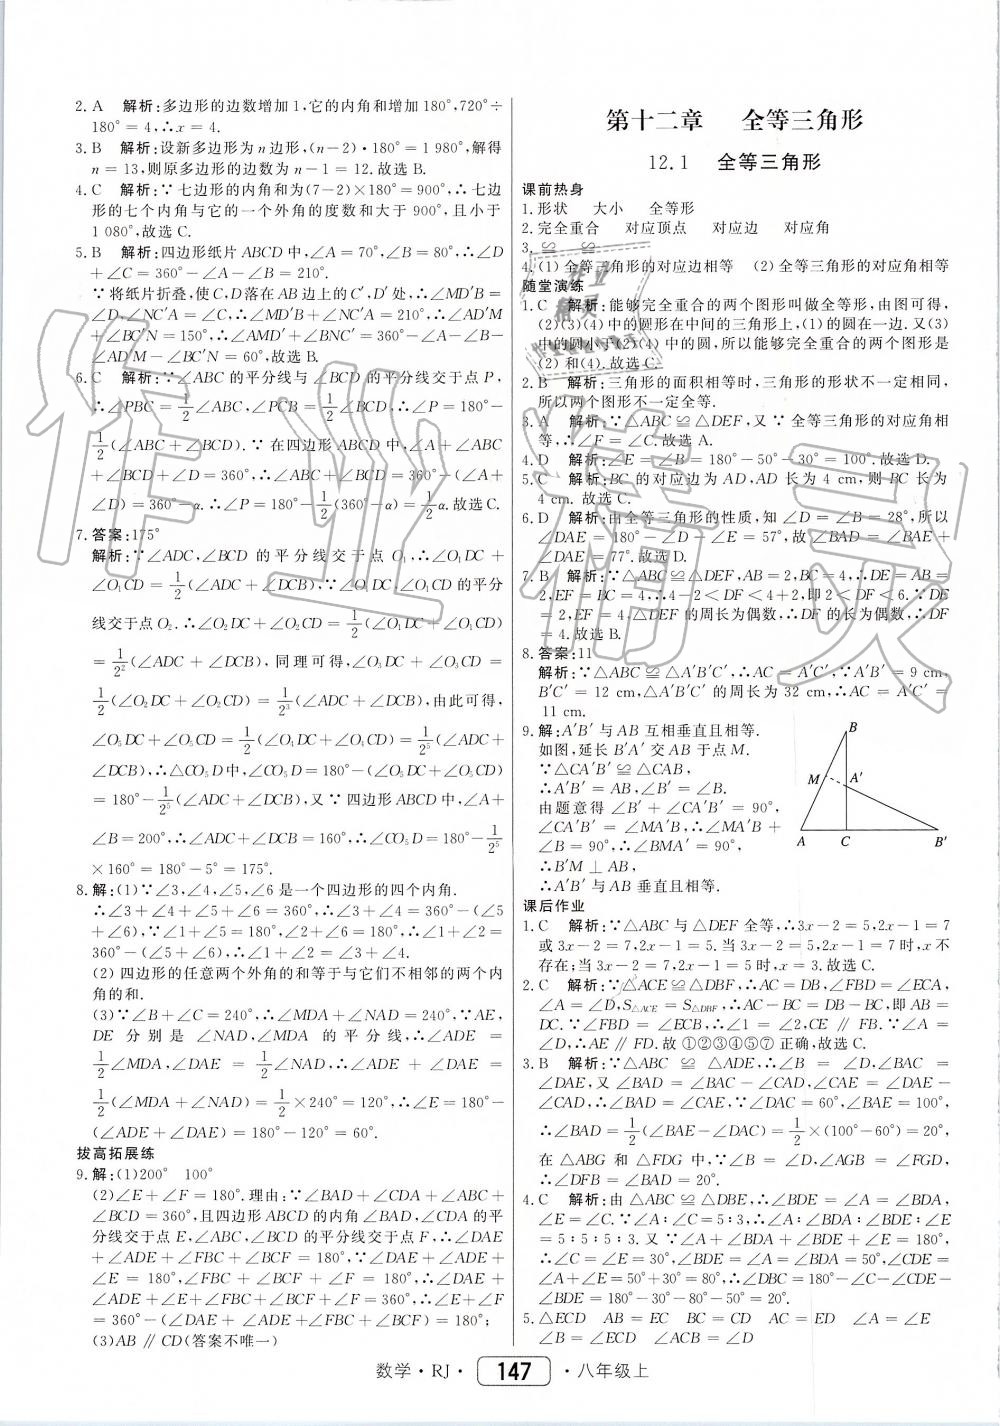 2. A　解析:多边形的边数增加1,它的内角和增加180°,720°÷
180°=4,∴x=4.
3. B　解析:设新多边形为n边形,(n-2)·180°=1 980°,解得
n=13,则原多边形的边数为n-1=12.故选B.
4. C　解析:∵七边形的内角和为(7-2)×180°=900°,∴七边
形的七个内角与它的一个外角的度数和大于900°,且小于
1 080°,故选C.
5. B　解析:四边形纸片ABCD中,∠A=70°,∠B=80°,∴∠D
+∠C=360°-∠A-∠B=210°.
∵将纸片折叠,使C,D落在AB边上的C′,D′处,∴∠MD′B=
∠D,∠NC′A=∠C,∴∠MD′B+∠NC′A=210°,∴∠AD′M
+∠BC′N=150°,∴∠AMD′+∠BNC′=360°-∠A-∠B-
∠AD′M-∠BC′N=60°,故选B.
6. C　解析:∵∠ABC的平分线与∠BCD的平分线交于点P,
∴∠PBC=1/2∠ABC,∠PCB=1/2∠BCD,∴∠P=180°-
1/2(∠ABC+∠BCD).∵在四边形ABCD中,∠A+∠ABC
+∠BCD+∠D=360°,∴∠ABC+∠BCD=360°-(∠A+
∠D)=360°-α.∴∠P=180°-1/2(360°-α)=1/2α.故选C.
7. 答案:175°
解析:∵∠ADC,∠BCD的平分线交于点O₁,∴∠O₁DC+
∠O₁CD=1/2(∠ADC+∠DCB).∵∠O₁DC,∠O₁CD的平分
线交于点O₂.∴∠O₂DC+∠O₂CD=1/2(∠O₁DC+∠O₁CD)
=1/2²(∠ADC+∠DCB),同理可得,∠O₃DC+∠O₃CD=
1/2(∠O₂DC+∠O₂CD)=1/2³(∠ADC+∠DCB),由此可得,
∠O₅DC+∠O₅CD=1/2(∠O₄DC+∠O₄CD)=1/2⁵(∠ADC+
∠DCB),∴△CO₅D中,∠CO₅D=180°-(∠O₅DC+∠O₅CD)
=180°-1/2⁵(∠ADC+∠DCB),又∵四边形ABCD中,∠A+
∠B=200°,∴∠ADC+∠DCB=160°,∴∠CO₅D=180°-1/2⁵
×160°=180°-5°=175°.
8. 解:(1)∵∠3,∠4,∠5,∠6是一个四边形的四个内角.
∴∠3+∠4+∠5+∠6=360°,∴∠3+∠4=360°-(∠5
+∠6),∵∠1+∠5=180°,∠2+∠6=180°,∴∠1+∠2=
360°-(∠5+∠6),∴∠1+∠2=∠3+∠4.
(2)四边形的任意两个外角的和等于与它们不相邻的两个内
角的和.
(3)∵∠B+∠C=240°,∴∠MDA+∠NAD=240°,∵AE,
DE分别是∠NAD,∠MDA的平分线,∴∠ADE=
1/2∠MDA,∠DAE=1/2∠NAD,∴∠ADE+∠DAE=
1/2(∠MDA+∠NAD)=1/2×240°=120°,∴∠E=180°-
(∠ADE+∠DAE)=180°-120°=60°.
拔高拓展练
9. 解:(1)200°　100°
(2)∠E+∠F=180°.理由:∵∠BAD+∠CDA+∠ABC+
∠BCD=360°,且四边形ABCD的内角∠BAD,∠CDA的平
分线交于点E,∠ABC,∠BCD的平分线交于点F,∴∠DAE
+∠ADE+∠FBC+∠BCF=180°,∵∠DAE+∠ADE+
∠E=180°,∠FBC+∠BCF+∠F=180°,∴∠DAE+
∠ADE+∠E+∠FBC+∠BCF+∠F=360°,∴∠E+∠F=
360°-(∠DAE+∠ADE+∠FBC+∠BCF)=180°;
(3)AB∥CD(答案不唯一)
第十二章　全等三角形
12.1　全等三角形
课前热身
1. 形状　大小　全等形
2. 完全重合　对应顶点　对应边　对应角
3. ≌　≌
4. (1)全等三角形的对应边相等　(2)全等三角形的对应角相等
随堂演练
1. C　解析:能够完全重合的两个图形叫做全等形,由图可得,
(2)(3)(4)中的圆形在中间的三角形上,(1)的圆在一边.又(3)
中的圆小于(2)(4)中的圆,所以能够完全重合的两个图形是
(2)和(4).故选C.
2. B　解析:三角形的面积相等时,三角形的形状不一定相同,
所以两个图形不一定全等.
3. A　解析:∵△ABC≌△DEF,又∵全等三角形的对应角相
等,∴∠F=∠C.故选A.
4. D　解析:∠E=∠B=180°-50°-30°=100°.故选D.
5. C　解析:BC的对应边为AD,AD长为4 cm,则BC长为
4 cm.故选C.
6. D　解析:由全等三角形的性质,知∠D=∠B=28°,所以
∠DAE=180°-∠D-∠E=57°,故∠BAD=∠BAE+
∠DAE=77°.故选D.
7. B　解析:∵△ABC≌△DEF,AB=2,BC=4,∴DE=AB=
2,EF=BC=4,∴4-2<DF<4+2,即2<DF<6.∵DE
=2,EF=4,△DEF的周长为偶数,∴DF的长为偶数,∴DF
=4.故选B.
8. 答案:11
解析:∵△ABC≌△A′B′C′,∴AC=A′C′,∵A′B′=9 cm,
B′C′=12 cm,△A′B′C′的周长为32 cm,∴AC=A′C′=
11 cm.
9. 解:A′B′与AB互相垂直且相等.
如图,延长B′A′交AB于点M.
∵△CA′B′≌△CAB,
∴A′B′=AB,∠B′=∠B.
由题意得∠B′+∠CA′B′=90°,
∠CA′B′=∠MA′B,∴∠MA′B+
∠B=90°,∴∠BMA′=90°,
∴B′M⊥AB,
∴A′B′与AB垂直且相等.
B
M
A′
A
C
B′
课后作业
1. C　解析:∵△ABC与△DEF全等,∴3x-2=5,2x-1=7
或3x-2=7,2x-1=5.当3x-2=5,2x-1=7时,x不
存在;当3x-2=7,2x-1=5时,x=3.故选C.
2. C　解析:∵△ACE≌△DBF,∴AC=DB,∠FBD=∠ECA,
∠A=∠D,S△ACE=S△DBF,∴AC-BC=DB-BC,即AB=
DC.∵∠FBD=∠ECB,∴∠1=∠2,CE∥FB.∵∠A=
∠D,∴AE∥FD.故①②③④⑤⑦正确,故选C.
3. B　解析:∵△ABC≌△ADE,∴∠B=∠D,∠BAC=
∠DAE,又∠BAD=∠BAC-∠CAD,∠CAE=∠DAE-
∠CAD,∴∠BAD=∠CAE,∵∠DAC=60°,∠BAE=100°,
∴∠BAD=1/2(∠BAE-∠DAC)=1/2×(100°-60°)=20°,
在△ABG和△FDG中,∵∠B=∠D,∠AGB=∠FGD,
∴∠DFB=∠BAD=20°.
4. C　解析:由△ABC≌△DBE,∴∠BDE=∠A=∠BDA,
∠E=∠C.∵∠A∶∠C=5∶3,∴∠A∶∠BDA∶∠BDE∶∠E
=5∶5∶5∶3.又∵∠A+∠BDA+∠BDE+∠E=180°,
∴∠C=∠E=30°,∠BDE=∠A=∠BDA=50°,∠CDE=
∠A+∠E=50°+30°=80°,∴∠DBC=180°-∠C-∠CDE-
∠BDE=180°-30°-80°-50°=20°.
5. △ECD　AB=EC　BC=CD　AC=ED　∠A=∠E
∠B=∠ECD　∠ACB=∠D
数学·RJ·　147　·八年级上
作业精灵